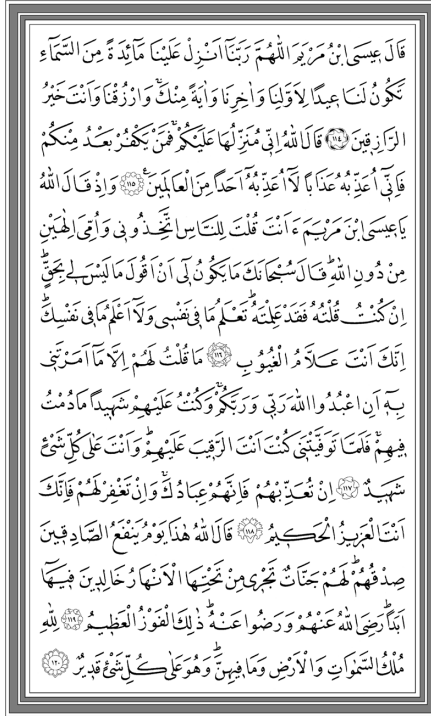 قَالَ عٖيسَى ابْنُ مَرْيَمَ اللّٰهُمَّ رَبَّنَٓا اَنْزِلْ عَلَيْنَا مَٓائِدَةً مِنَ السَّمَٓاءِ
تَكُونُ لَنَا عٖيدًا لِاَوَّلِنَا وَاٰخِرِنَا وَاٰيَةً مِنْكَۚ وَارْزُقْنَا وَاَنْتَ خَيْرُ
الرَّازِقٖينَ ﴿١١٤﴾ قَالَ اللّٰهُ اِنّٖي مُنَزِّلُهَا عَلَيْكُمْۚ فَمَنْ يَكْفُرْ بَعْدُ مِنْكُمْ
فَاِنّٖٓي اُعَذِّبُهُ عَذَابًا لَٓا اُعَذِّبُهُٓ اَحَدًا مِنَ الْعَالَمٖينَࣖ ﴿١١٥﴾ وَاِذْ قَالَ اللّٰهُ
يَا عٖيسَى ابْنَ مَرْيَمَ ءَاَنْتَ قُلْتَ لِلنَّاسِ اتَّخِذُونٖي وَاُمِّيَ اِلٰهَيْنِ
مِنْ دُونِ اللّٰهِۜ قَالَ سُبْحَانَكَ مَا يَكُونُ لٖٓي اَنْ اَقُولَ مَا لَيْسَ لٖي بِحَقٍّۜ
اِنْ كُنْتُ قُلْتُهُ فَقَدْ عَلِمْتَهُۜ تَعْلَمُ مَا فٖي نَفْسٖي وَلَٓا اَعْلَمُ مَا فٖي نَفْسِكَۜ
اِنَّكَ اَنْتَ عَلَّامُ الْغُيُوبِ ﴿١١٦﴾ مَا قُلْتُ لَهُمْ اِلَّا مَٓا اَمَرْتَنٖي
بِهٖٓ اَنِ اعْبُدُوا اللّٰهَ رَبّٖي وَرَبَّكُمْۚ وَكُنْتُ عَلَيْهِمْ شَهٖيدًا مَا دُمْتُ
فٖيهِمْۚ فَلَمَّا تَوَفَّيْتَنٖي كُنْتَ اَنْتَ الرَّقٖيبَ عَلَيْهِمْۜ وَاَنْتَ عَلٰى كُلِّ شَيْءٍ
شَهٖيدٌ ﴿١١٧﴾ اِنْ تُعَذِّبْهُمْ فَاِنَّهُمْ عِبَادُكَۚ وَاِنْ تَغْفِرْ لَهُمْ فَاِنَّكَ
اَنْتَ الْعَزٖيزُ الْحَكٖيمُ ﴿١١٨﴾ قَالَ اللّٰهُ هٰذَا يَوْمُ يَنْفَعُ الصَّادِقٖينَ
صِدْقُهُمْۜ لَهُمْ جَنَّاتٌ تَجْرٖي مِنْ تَحْتِهَا الْاَنْهَارُ خَالِدٖينَ فٖيهَٓا
اَبَدًاۜ رَضِيَ اللّٰهُ عَنْهُمْ وَرَضُوا عَنْهُۜ ذٰلِكَ الْفَوْزُ الْعَظٖيمُ ﴿١١٩﴾ لِلّٰهِ
مُلْكُ السَّمٰوَاتِ وَالْاَرْضِ وَمَا فٖيهِنَّۜ وَهُوَ عَلٰى كُلِّ شَيْءٍ قَدٖيرٌ ﴿١٢٠﴾